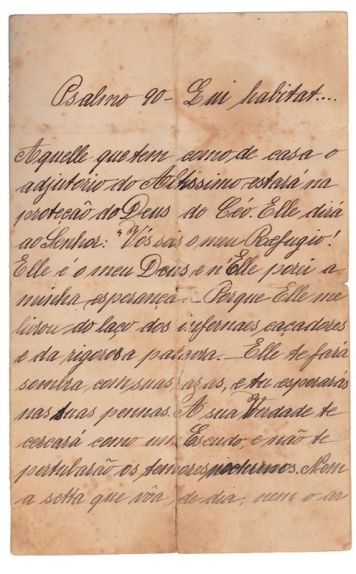 Psalmo 90 - Qui habitat....
Aquelle que tem como de casa o
adjutório do Altissimo estará na
proteção do Deus do Céo. Elle dirá
ao Senhor: "Vós sois o meu Refugio!
Elle é o meu Deus e n'Elle porei a
minha esperança. - Porque Elle me
livrou do laço dos infernaes caçadores
e da rigorosa palavra. - Elle te fará
sombra com suas azas, e tu esperarás
nas suas pennas. A sua Verdade te
cercará como um Escudo e não te
pertubarão os temores nocturnos. Nem
a setta que vôa de dia, nem o ar